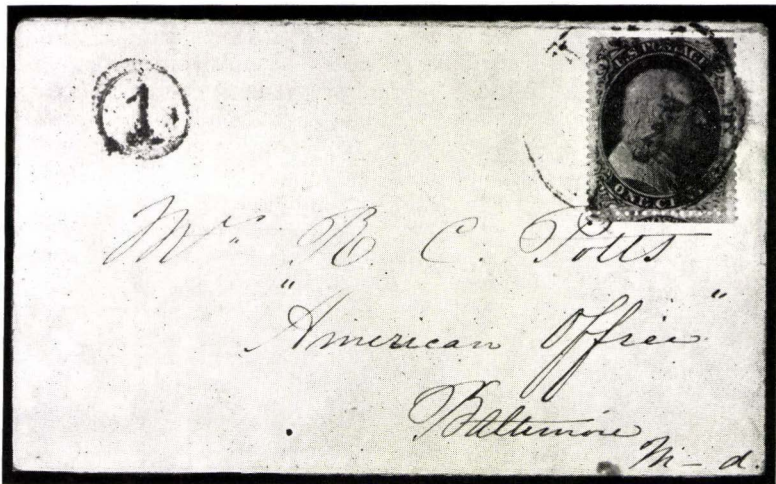 1
U.S. POSTAGE
ONE CE
Mr. R. C. Potts
"American Office"
Baltimore
M-d.